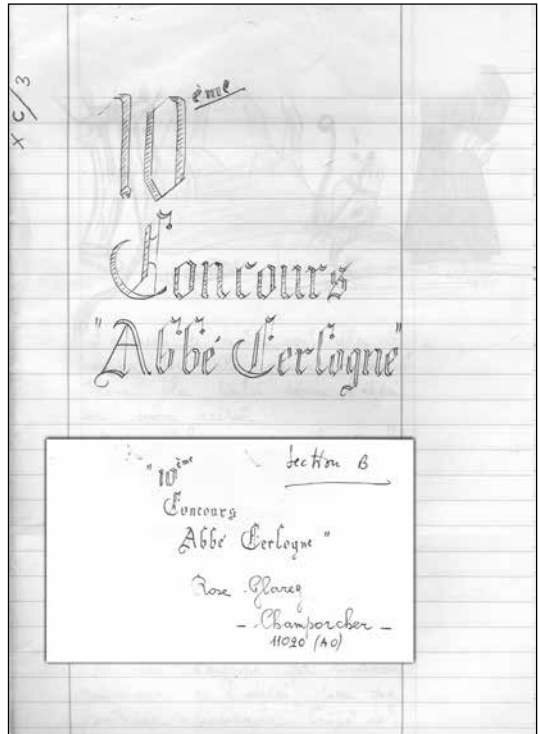 x c/3
10ème
Concours
"Abbé Cerlogne"
"10ème
Section B
Concours
Abbé Cerlogne"
Rose Glarey
- Champorcher -
11020 (AO)